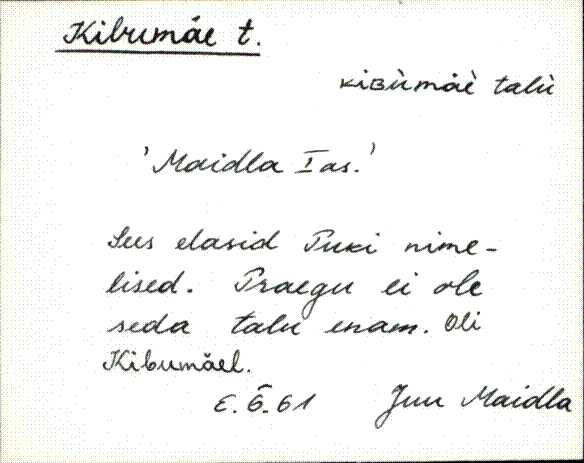 Kibumäe t.
KIBÙmäè talù
'Maidla I as.'
Sees elasid Puki nime-
lised. Praegu ei ole
seda talu enam. Oli
Kibumäel.
E. 6.61 Juu Maidla